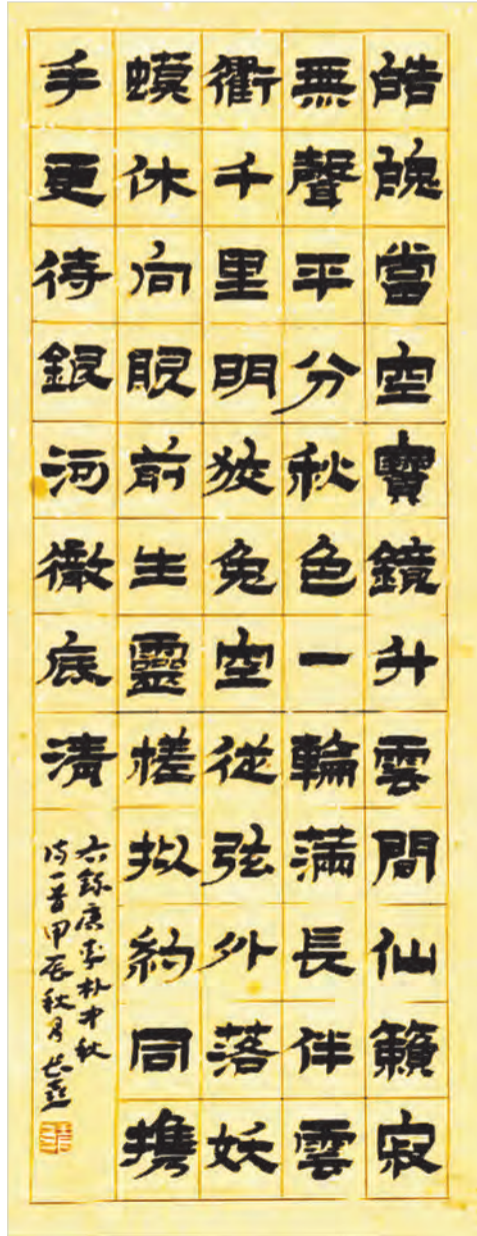 皓魄當空寶鏡升雲間仙籟寂
無聲平分秋色一輪滿長伴雲
衢千里明狡兔空從弦外落妖
蟆休向眼前生靈槎拟約同携
手更待銀河徹底清
右錄唐李朴中秋
詩一首甲辰秋月